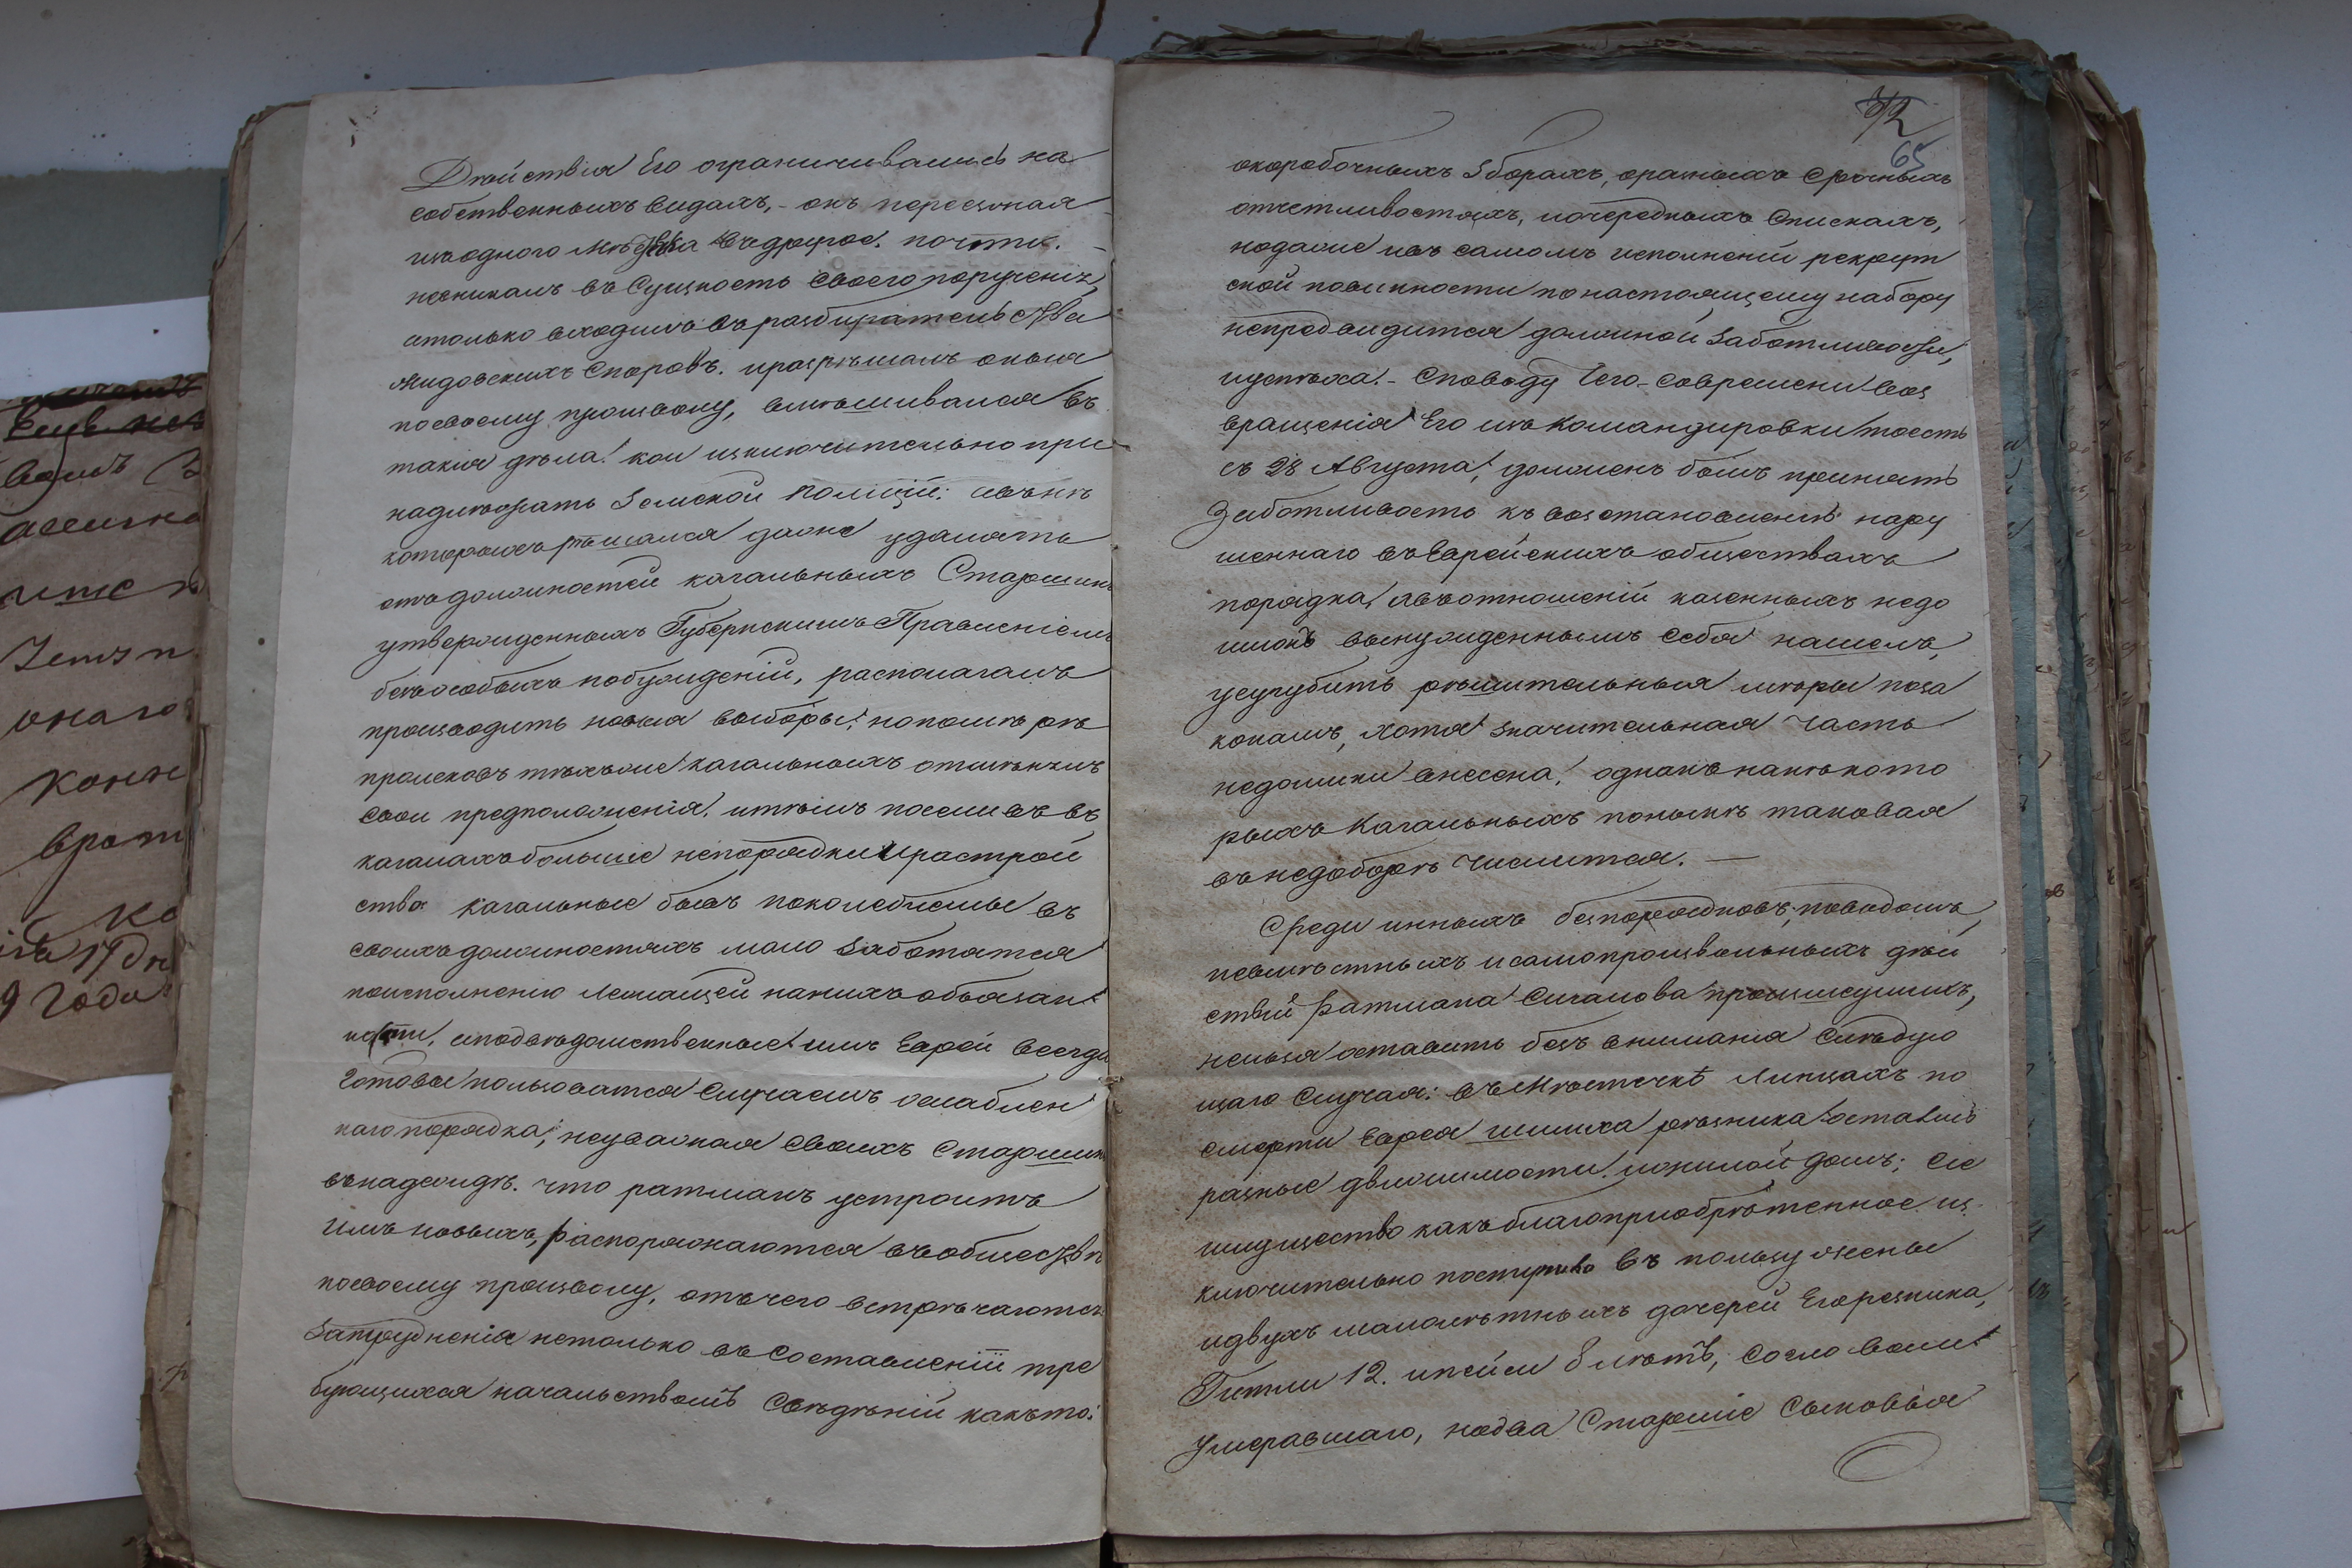 Действія Его ограничивались на
собственныхъ видахъ, - онъ переезжая
изъ одного мѣстечка въ другое. почти.
невникалъ въ Сущность своего порученія,
а только входилъ въ разбирательства
жидовскихъ Споровъ. и разрѣшалъ оныя
посвоему произволу, вмѣшивался въ
такія дѣла! кои изключительно при
надлѣжатъ Земской полиціи: изъ нихъ
которыхъ рѣшался даже удалять
отъ должностей кагальныхъ Старшинъ
утвержденныхъ Губернскимъ Правленіемъ
безъ особыхъ побужденій, располагалъ
производить новыя выборы; но по мѣрѣ
происковъ тѣхъже кагальныхъ отмѣнилъ
свои предположенія, и тѣмъ поселивъ въ
кагалахъ большіе непорядки и растрой
ства кагальные бывъ поколеблемы въ
своихъ должностяхъ мало заботятся
поисполненію лежащей на нихъ обязан
ности, а подвѣдомственные имъ Евреи всегда
готовы пользоватся Случаемъ ослаблен
наго порядка; неуважая своихъ Старшинъ
въ надеждѣ. что ратманъ устроитъ
имъ новыхъ, распоряжаются въ обществѣ
посвоему произволу, отъ чего встрѣчаются
Затрудненія нетолько въ составленіи тре
бующихся начальствомъ Свѣдѣній какъто:
72
65
окоробочныхъ Зборахъ, оразныхъ Срочныхъ
отчетливостяхъ, иочередныхъ Спискахъ,
нодаже ивъ самомъ исполненіи рекрут
ской повинности понастоящему набору
непредвидится должной Заботливости,
иуспѣха. - Споводу Чего - Современи воз
вращенія Его изъ Командировки тоесть
съ 28 Августа, долженъ былъ принять
Заботливость къ возстановленію нару
шеннаго въ Еврейскихъ обществахъ
порядка, ивъ отношеній казенныхъ недо
имокъ вынужденнымъ Себя нашелъ,
усугубить рѣшительныя мѣры поза
конамъ, хотя значительная Часть
недоимки внесена! однакъ нанѣкото
рыхъ Кагальныхъ понынѣ таковая
въ недоборѣ числится. —
Среди инныхъ безпорядковъ, поводомъ,
неумѣстныхъ и самопроизвольныхъ дѣй
ствій ратмана Сичалова произшедшихъ,
нельзя оставить безъ вниманія Слѣдую
щаго Случая: въ мѣстечкѣ Липцахъ по
смерти Еврея шмиха рѣзника остались
разные движимости. и жилой домъ; Сіе
имущество какъ благопріобрѣтенное из.
ключительно поступило въ пользу жены
идвухъ малолѣтныхъ дочерей Егорезника,
Гитли 12. и пейси 8 лѣтъ, Согло воли
Умеравшаго, нодва Старшіе Сыновья